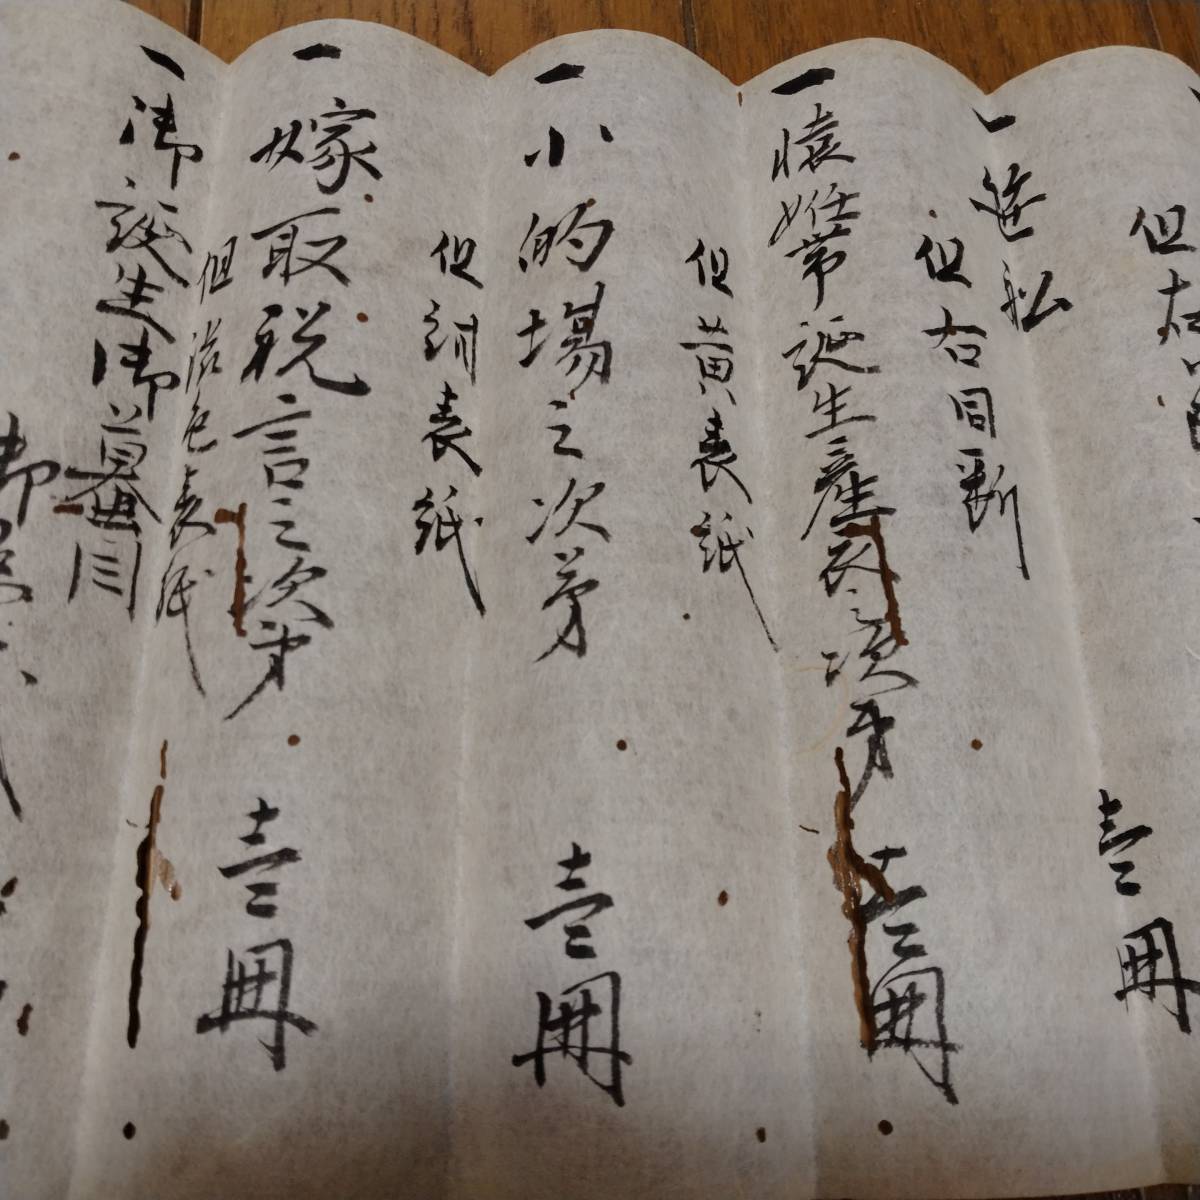 但
壹冊
一
但右同断
一懐妊帯誕生産衣之次第 壹冊
但黄表紙
一小的場之次第 壹冊
但紺表紙
一嫁取祝言之次第 壹冊
但渋色表紙
一御誕生御蟇目
御